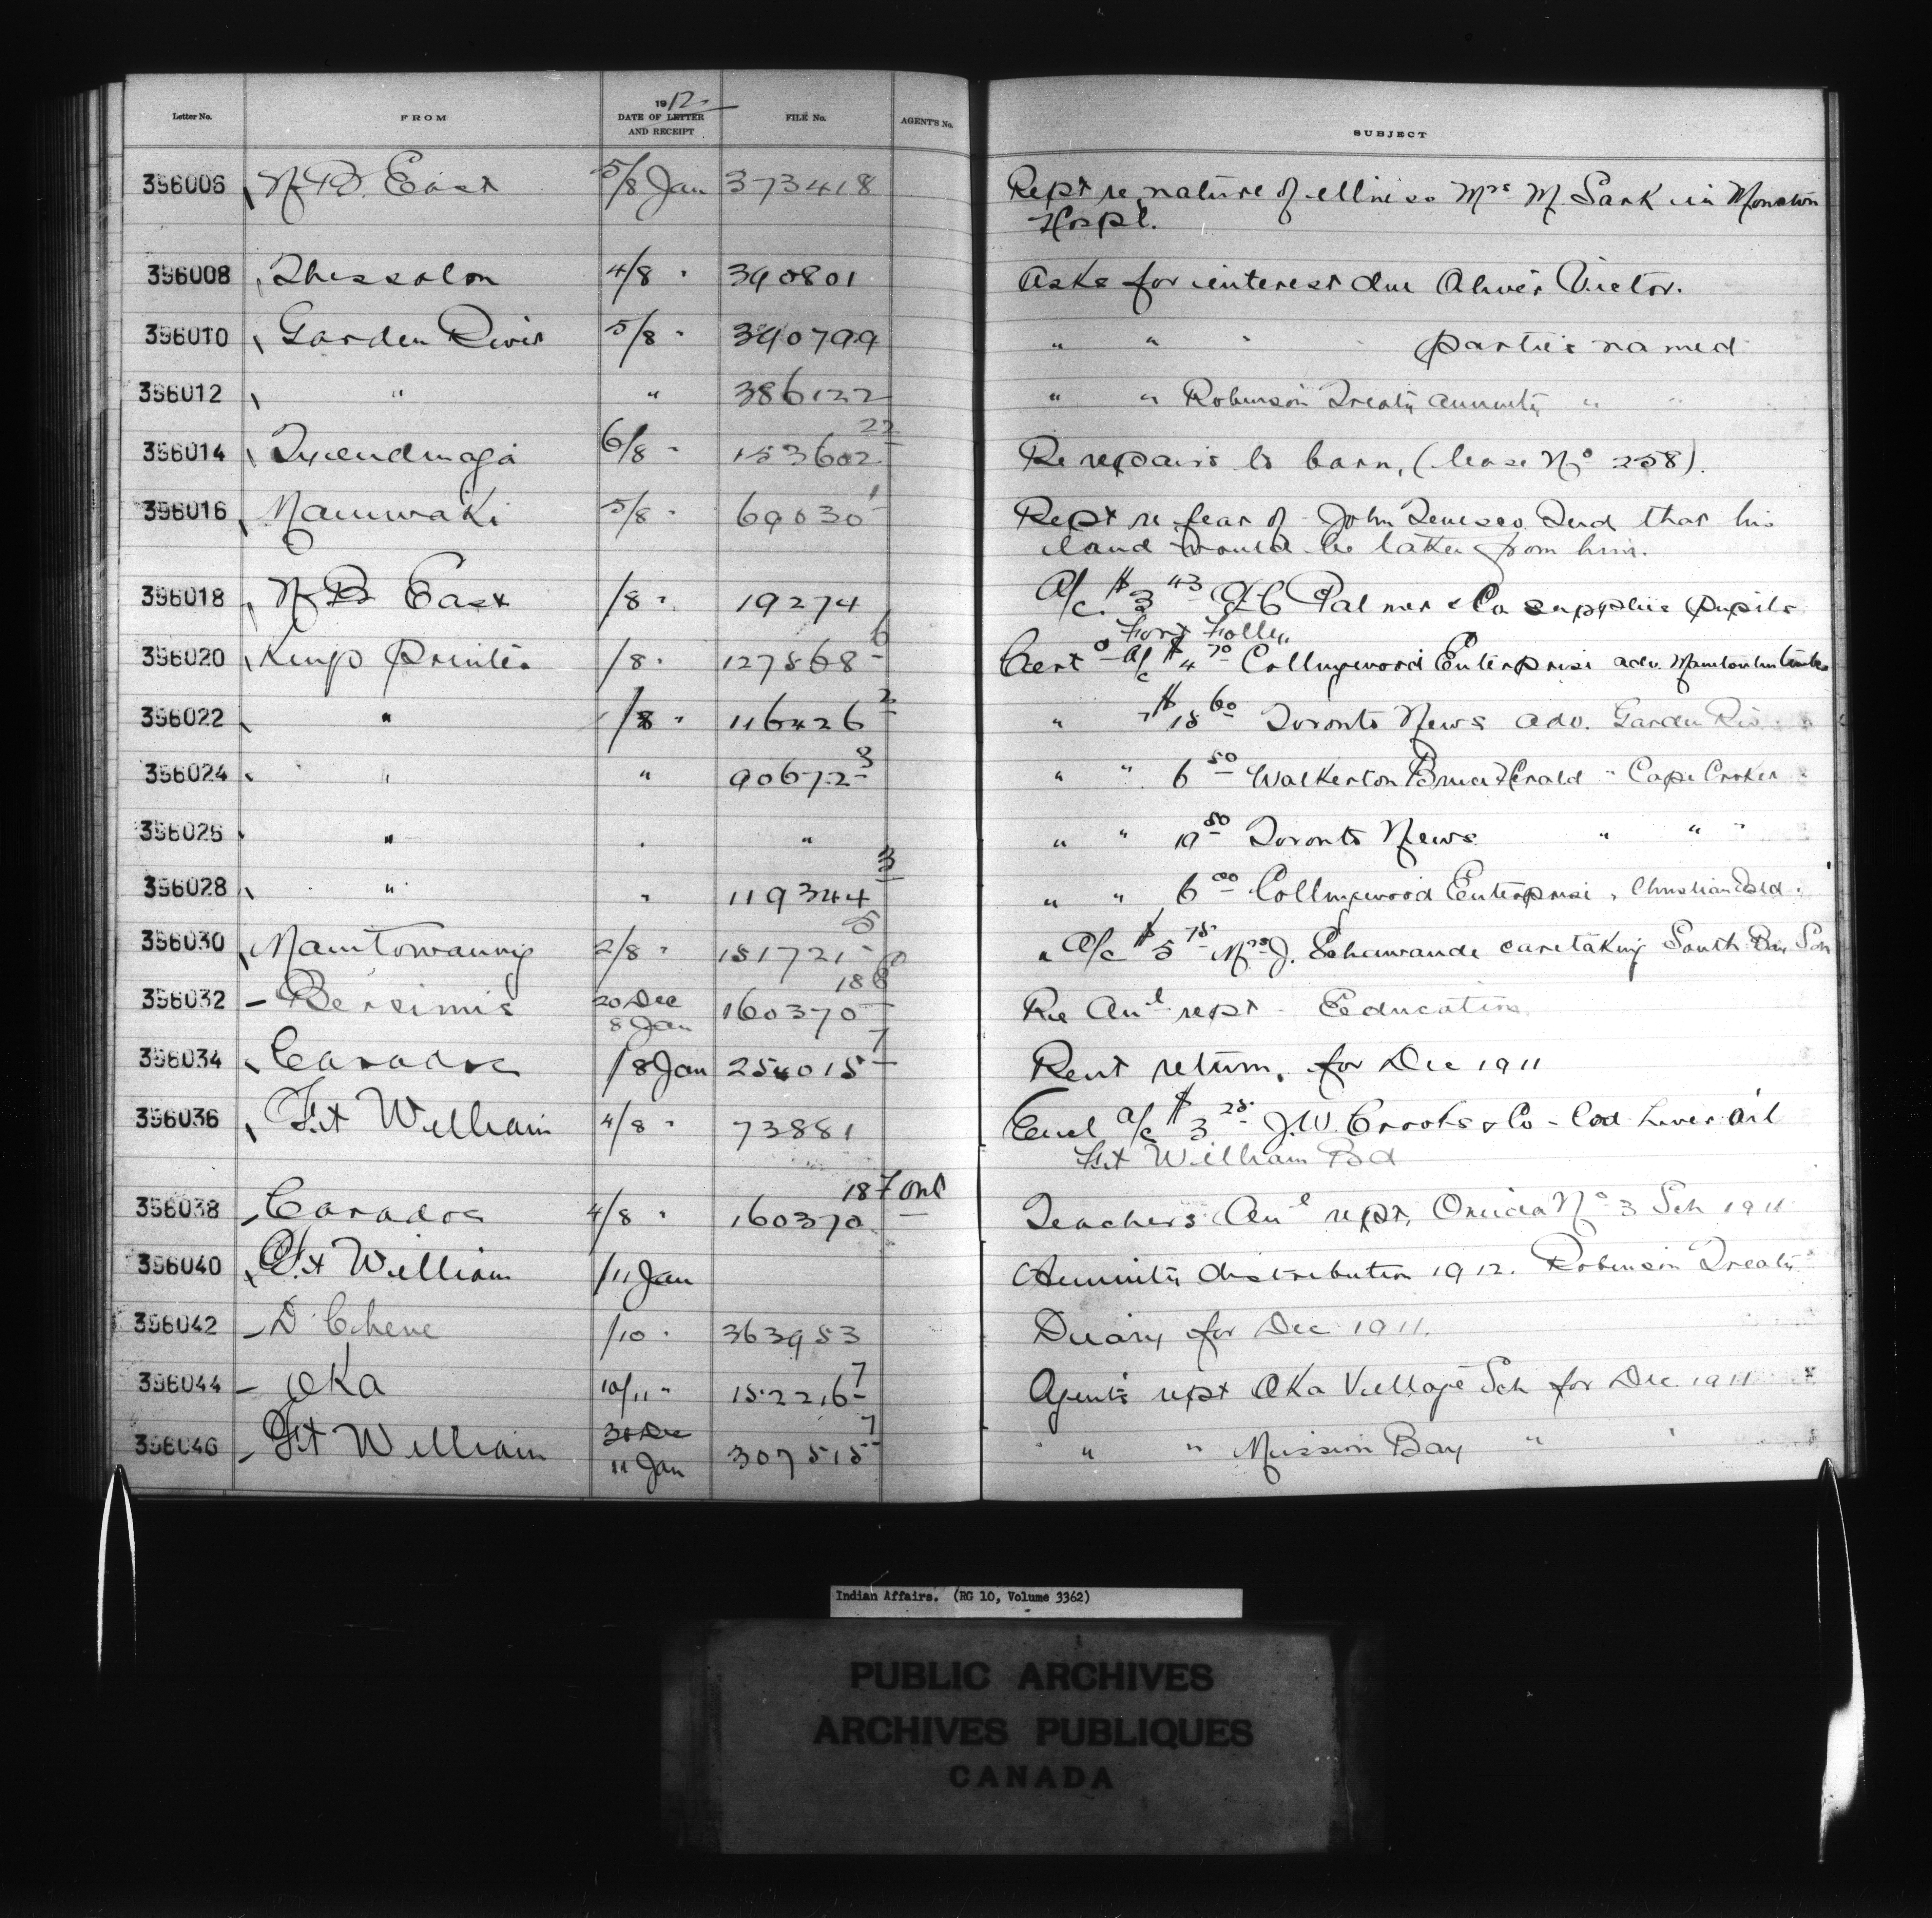 Letter No. FROM 1912 DATE OF LETTER AND RECEIPT FILE No. AGENT'S No. SUBJECT
396006 N.B. East 5/8 Jan 373418 Rept re nature of illness Mrs M Sark in Moncton
Hospl.
396008 Thessalon 4/8 " 390801 Asks for interest due Oliver Victor.
396010 Garden River 5/8 " 390799 " " " " parties named
396012 " " 386122 " " Robinson Treaty annuity " "
396014 Tyendinaga 6/8 " 153602 22 Re repairs to barn, (lease No 258).
396016 Maniwaki 5/8 " 69030 1 Rept re fear of John Tenesco 2nd that his
land would be taken from him.
396018 N B East /8 " 19274 A/c $3 43 Palmer & Co supplies pupils
Fort Folly
396020 Kings Printer /8 " 127568 6 Cert a/c $4 70 Collingwood Enterprise adv. Manitoulin timber
396022 " /8 " 116426 2 " " $18 60 Toronto News adv. Garden Riv. "
396024 " " 90672 3 " " 6 50 Walkerton Bruce Herald " Cape Croker "
396026 " " " " " 19 80 Toronto News " " "
396028 " " 119344 3 " " 6 00 Collingwood Enterprise " Christian Isld "
396030 Manitowaning 2/8 " 151721 5 " A/c $5 75 Mrs J. caretaking South Bay Sch
396032 - Bersimis 20 Dec 8 Jan 160370 186 Q Re Anl rept - Education
396034 Caradoc /8 Jan 254015 7 Rent return, for Dec 1911
396036 Ft William 4/8 " 73881 Encl a/c $3 25 J.W. Crooks & Co - Cod Liver Oil
Ft William Bd
396038 - Caradoc 4/8 " 160370 187 Ont Teachers Anl rept, Oneida No 3 Sch 1911
396040 Ft William /11 Jan Annuity distribution 1912. Robinson Treaty
396042 - D Chene /10 " 363953 Diary for Dec 1911.
396044 - Oka 10/11 " 152216 7 Agents rept Oka Village Sch for Dec 1911
396046 - Ft William 30 Dec 11 Jan 307515 7 " " " Mission Bay " "
Indian Affairs. (RG 10, Volume 3362)
PUBLIC ARCHIVES
ARCHIVES PUBLIQUES
CANADA